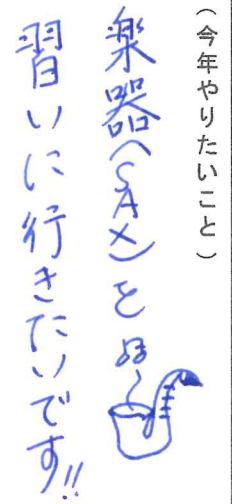 （今年やりたいこと）
楽器（SAX）を
習いに行きたいです!!